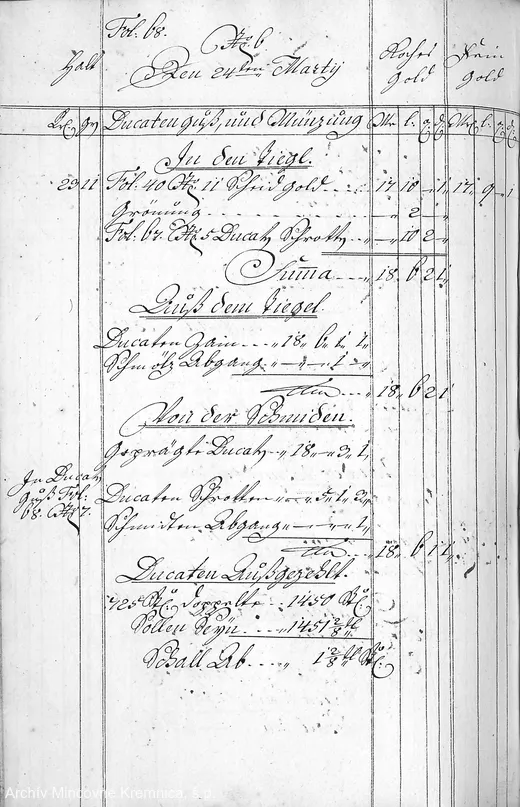 Fol: 68.
No 6
Halt Den 24ten Martÿ Roches Gold Fein Gold
Kr. gr Ducaten guß, und Münzung Mr l. q d Mr l. q d
In den Tiegl.
23 11 Fol: 40 No 11 Scheid gold 17 10 - 1 17 9 - 1
Grönung - 2 -
Fol: 67. No 5 Ducat Schrott - 10 2 -
Summa 18. 6 2 1
Auß dem Tiegel.
Ducaten Zain 18. 6. 1. 1.
Schmölz Abgang - - 1 -
18. 6 2 1
Von der Schmiden.
Geprägte Ducat 18 - 3. 1.
In Ducat
Guß Fol:
68. No 7.
Ducaten Schrotten - 5. 1. 3.
Schmidten Abgang - - - 1.
18. 6 1 1
Ducaten Außgezehlt.
725 Stk. doppelte 1450 Stk.
Sollen Seyn 1451 2/8 tl
Schall Ab 1 2/8 tl Stk.
Archív Mincovne Kremnica, š.p.